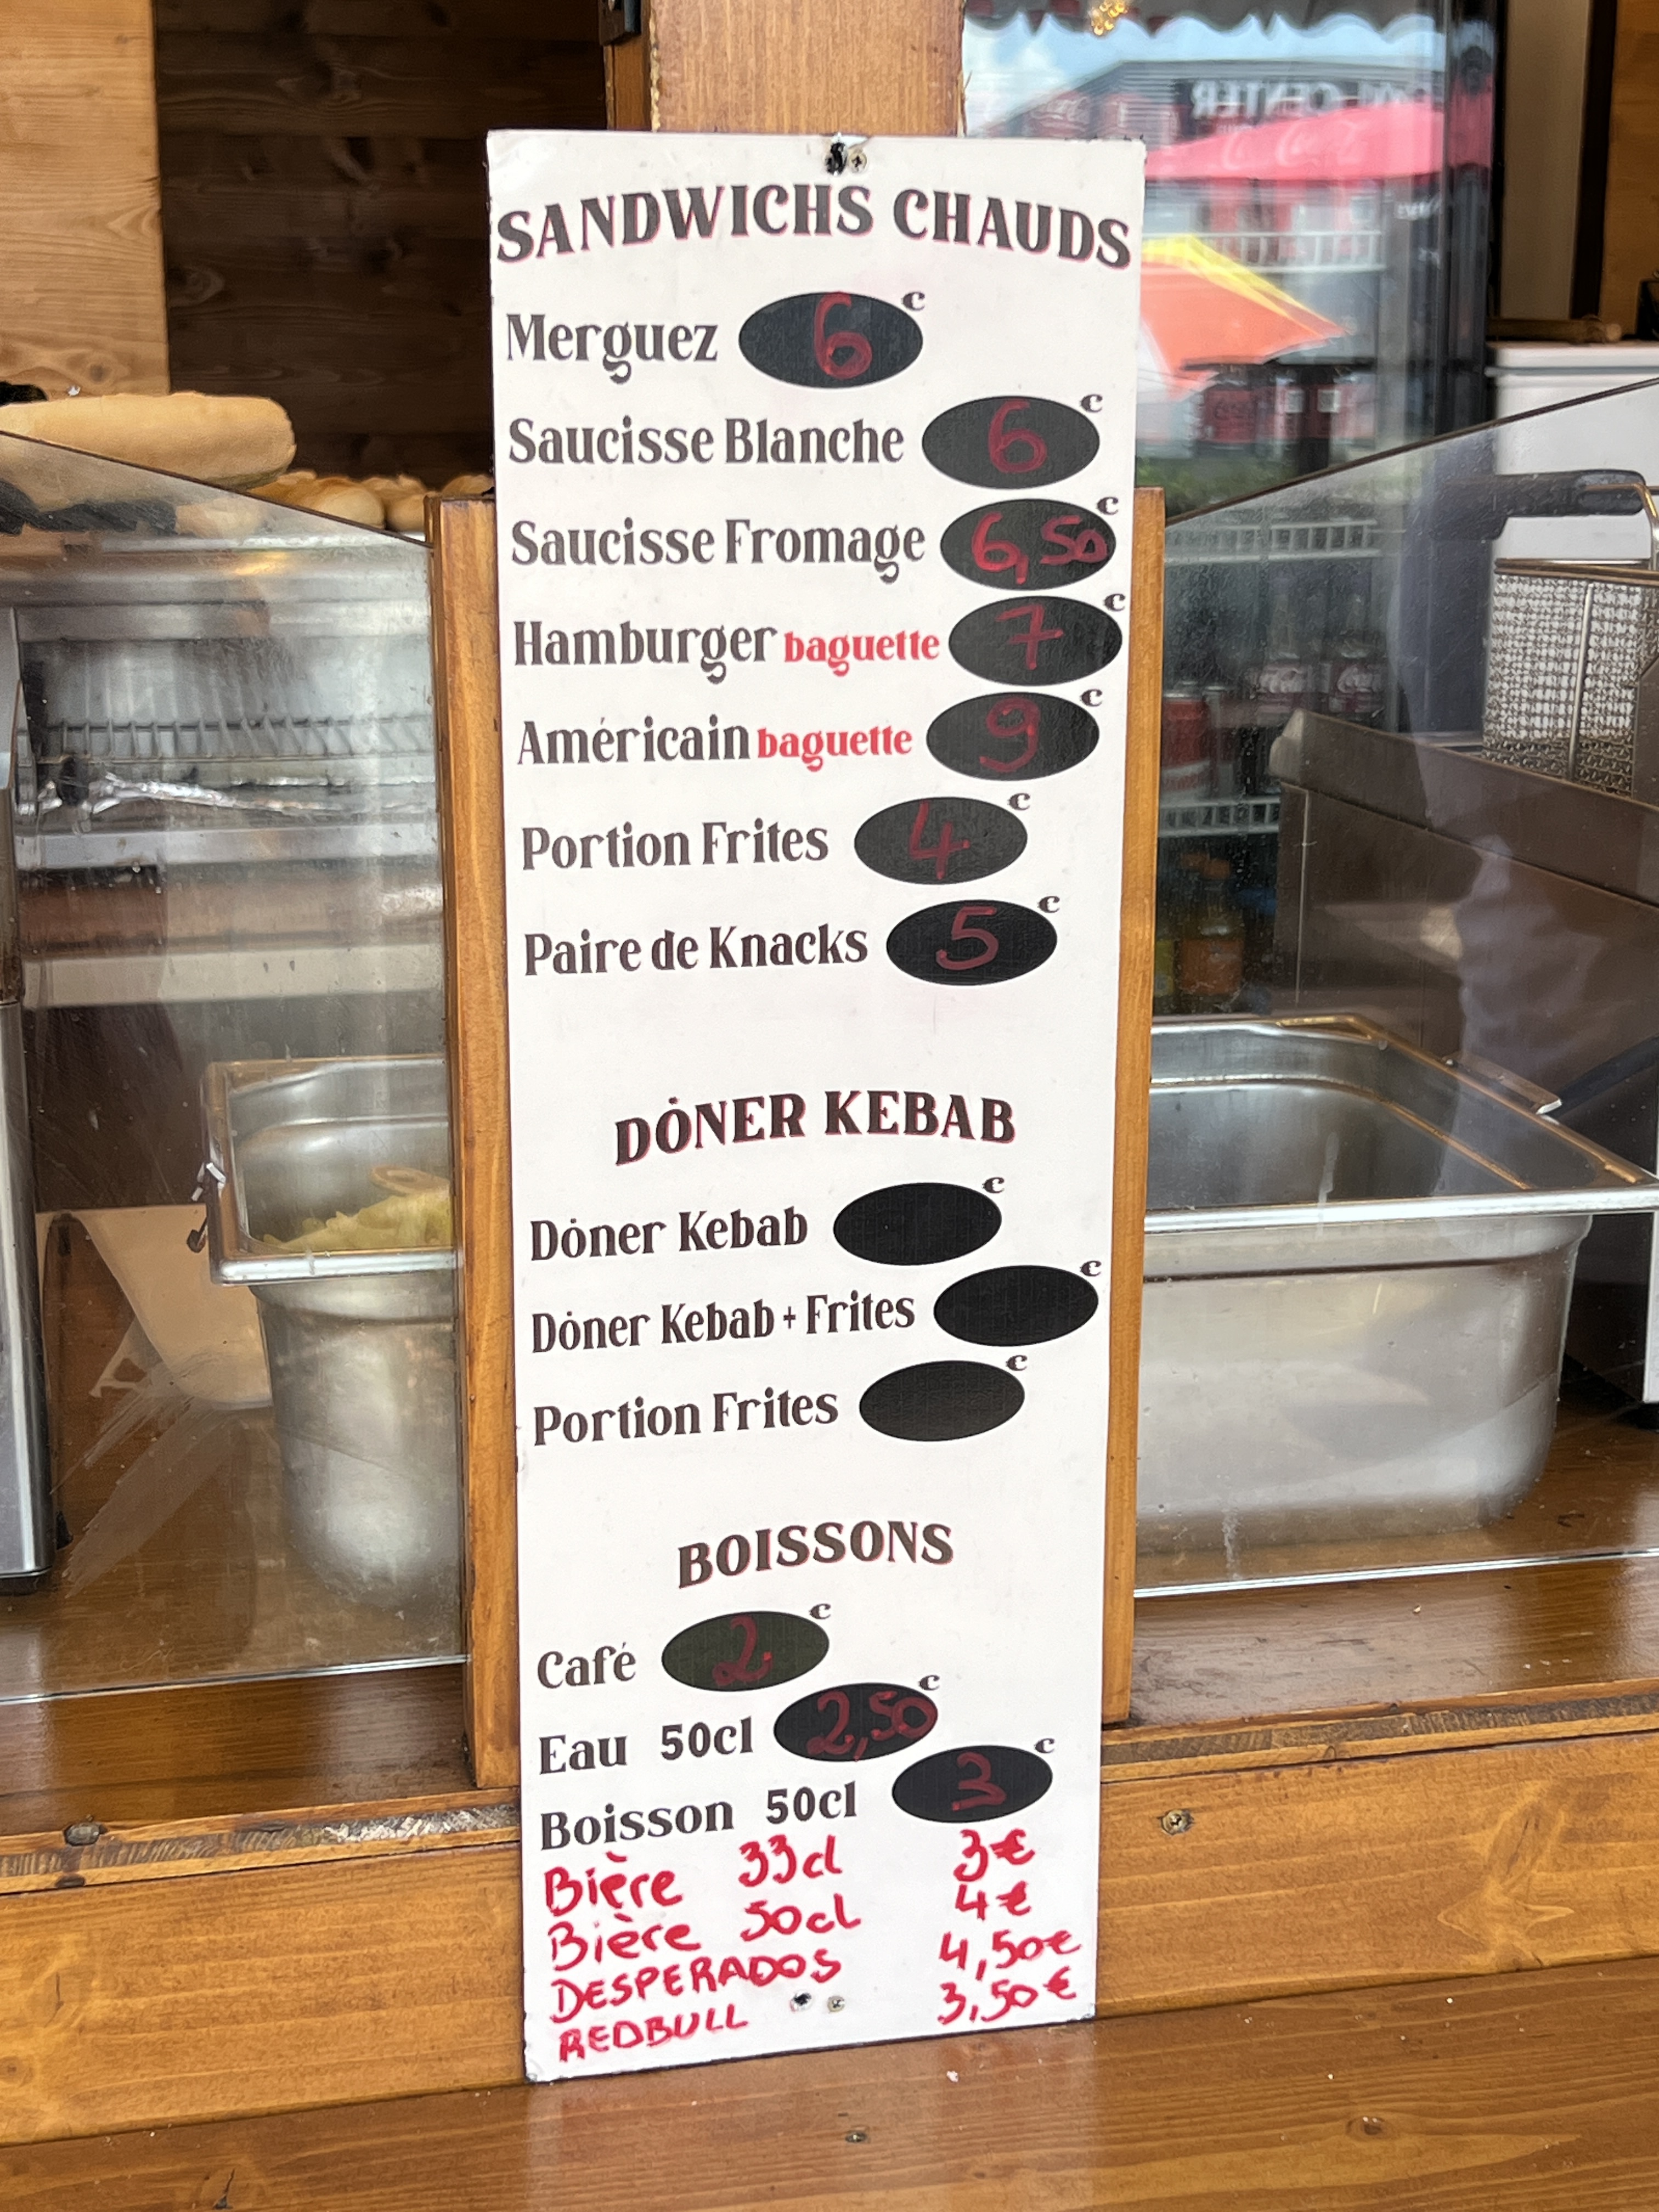 SANDWICHS CHAUDS
Merguez 6 €
Saucisse Blanche 6 €
Saucisse Fromage 6,50 €
Hamburger baguette 7 €
Américain baguette 9 €
Portion Frites 4 €
Paire de Knacks 5 €
DÖNER KEBAB
Döner Kebab €
Döner Kebab + Frites €
Portion Frites €
BOISSONS
Café 2 €
Eau 50cl 2,50 €
Boisson 50cl 3 €
Bière 33cl 3€
Bière 50cl 4€
DESPERADOS 4,50€
REDBULL 3,50€
CENTER